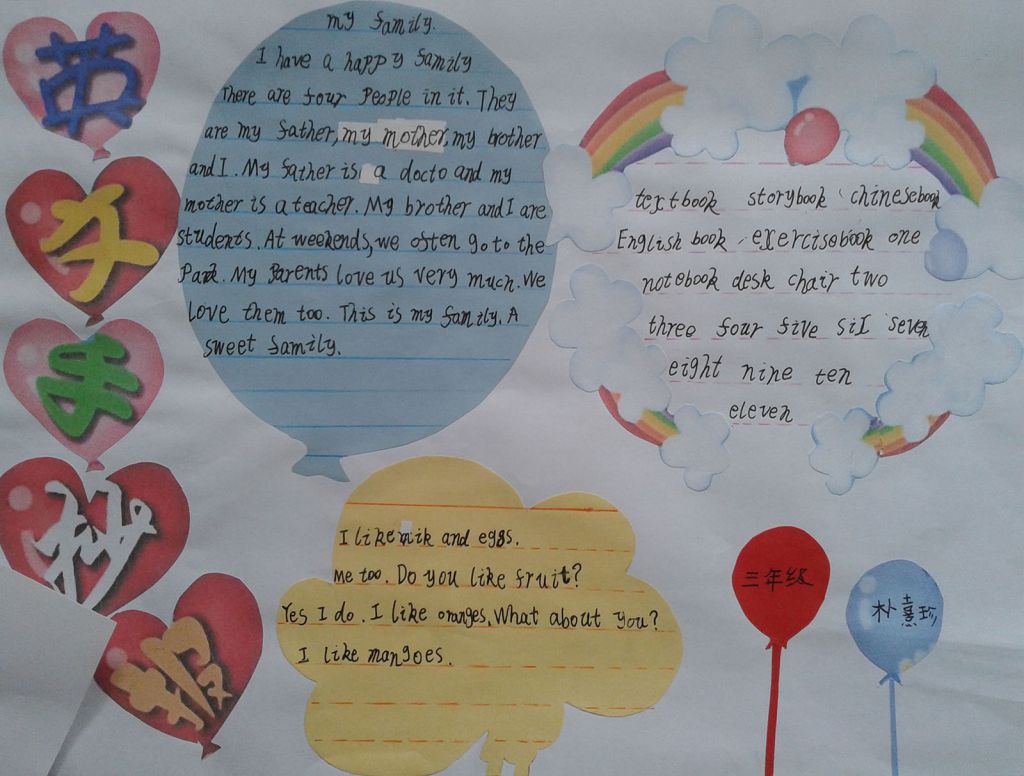 英
文
手
抄
报
my family.
I have a happy family
There are four People in it. They
are my father, my mother, my brother
and I. My father is a docto and my
mother is a teacher. My brother and I are
students. At weekends, we often go to the
Park. My Parents love us very much. We
love them too. This is my family. A
sweet family.
textbook storybook chinesebook
English book exercisebook one
notebook desk chair two
three four five siI seven
eight nine ten
eleven
I like mik and eggs.
Me too. Do you like fruit?
Yes I do. I like oranges. What about you?
I like mangoes.
三年级
朴熹珍